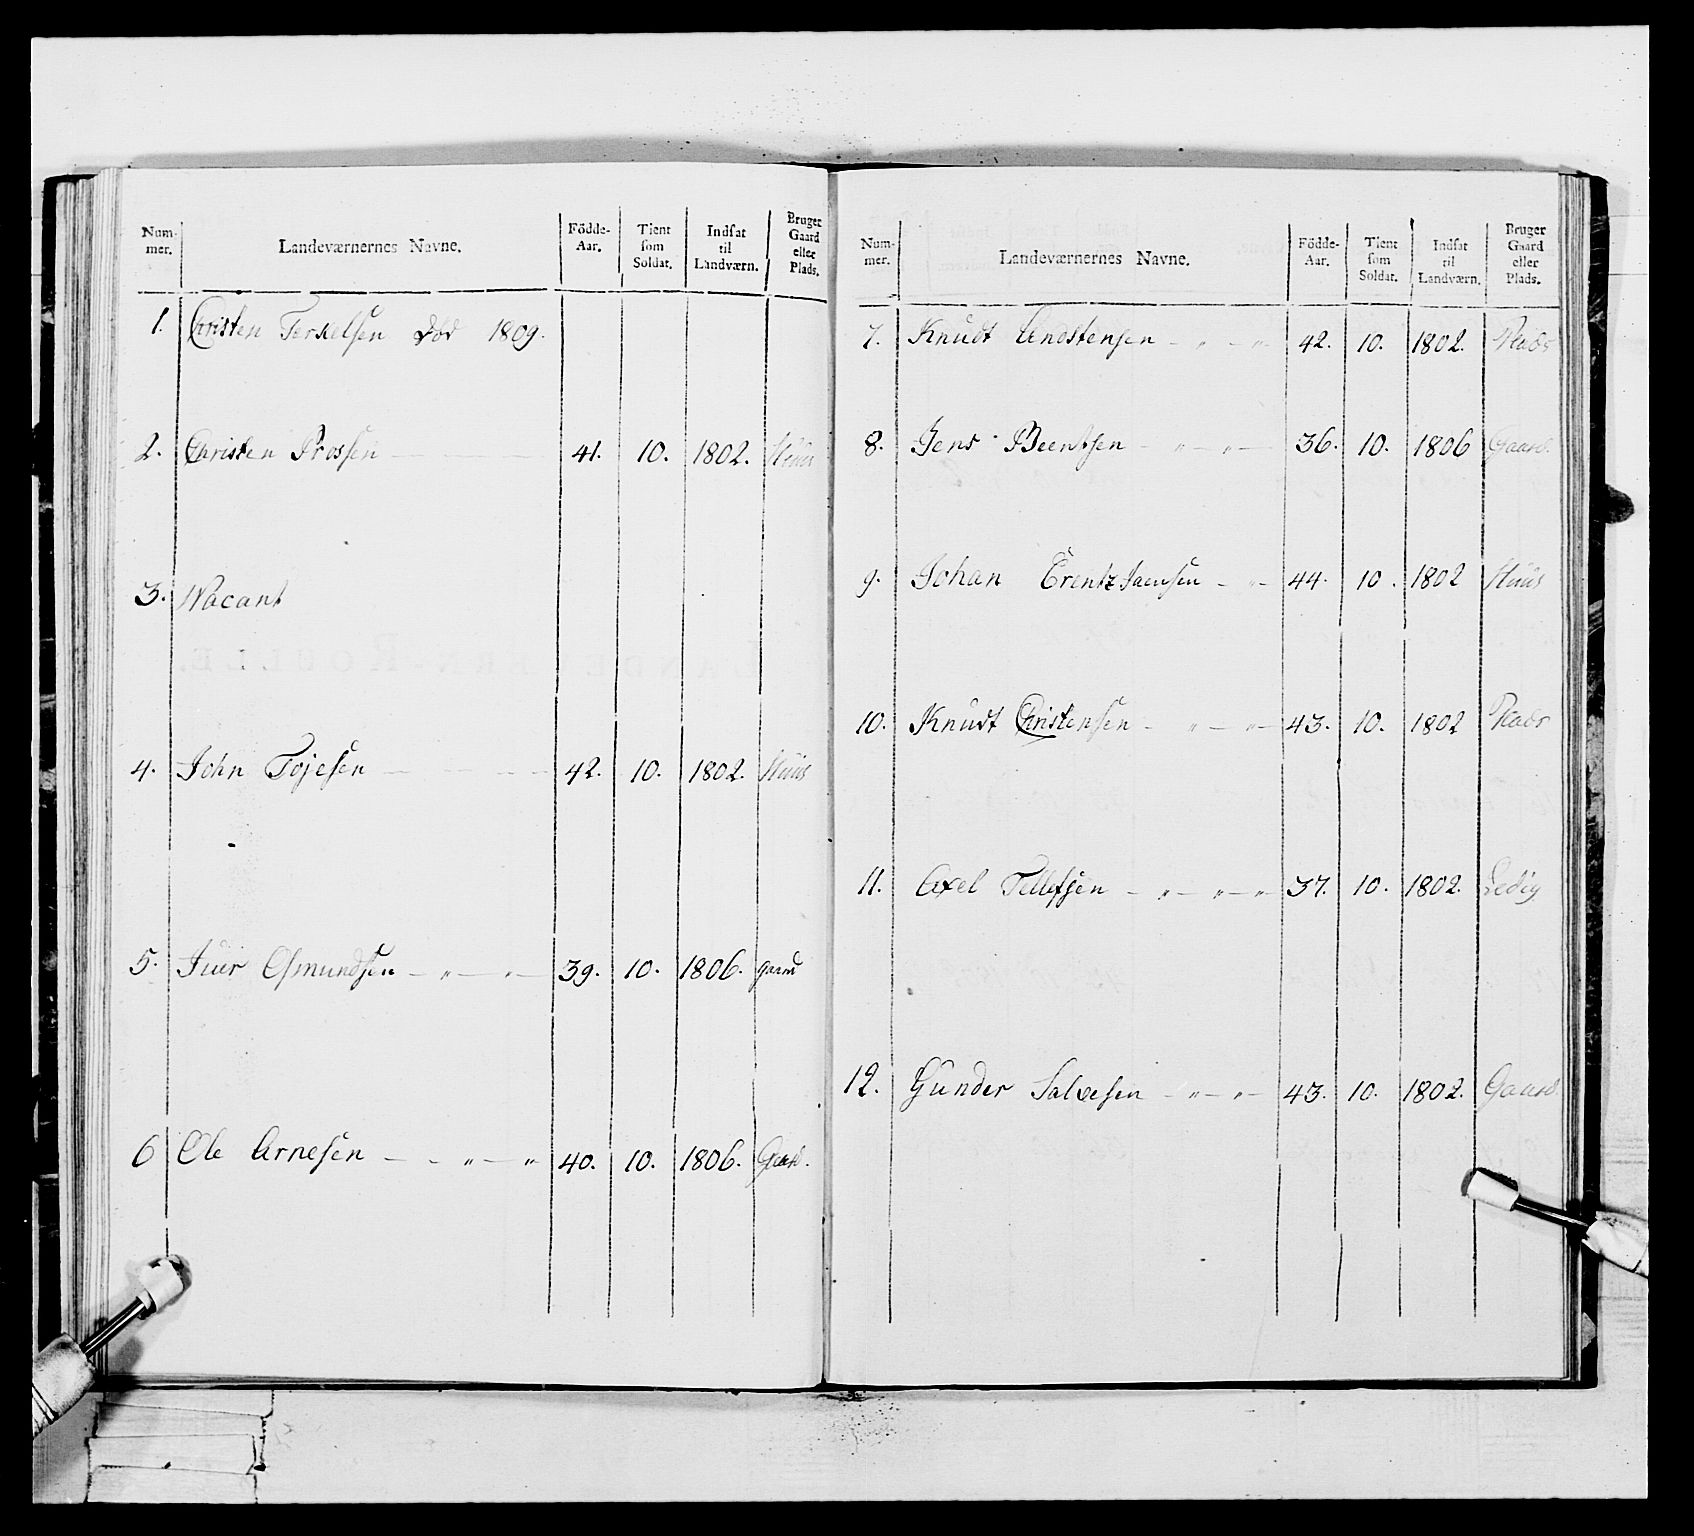 Num-
mer.
Landeværnernes Navne.
Födde-
Aar.
Tient
som
Soldat.
Indsat
til
Landværn.
Bruger
Gaard
eller
Plads.
1. Christen Terkelsen Död 1809.
2. Christen Prossen 41. 10. 1802. Huus
3. Vacant
4. John Tojesen 42. 10. 1802. Huus
5. Osmundsen 39. 10. 1806. gaard
6 Ole Arnesen 40. 10. 1806. Gaard.
Num-
mer.
Landeværnernes Navne.
Födde-
Aar.
Tient
som
Soldat.
Indsat
til
Landværn.
Bruger
Gaard
eller
Plads.
7. Knudt 42. 10. 1802. Plads
8. Jens Beentsen 36. 10. 1806 Gaard.
9. Johan 44. 10. 1802 Huus
10. Knudt Christensen 43. 10. 1802 Plads
11. Axel Tellefsen 37. 10. 1802. Ledig
12. Gunder Salvesen 43. 10. 1802. Gaard.